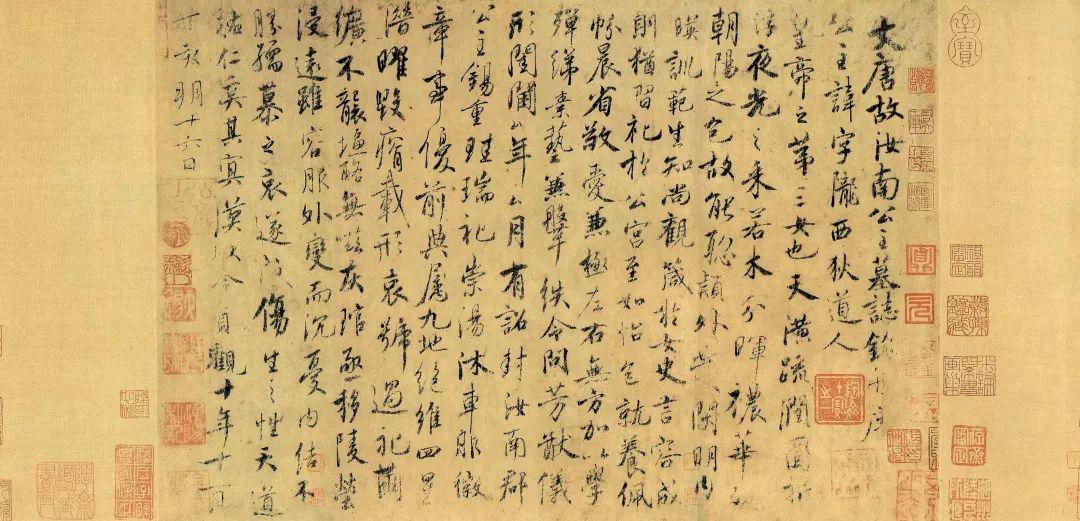 大唐故汝南公主墓誌銘并序
公主諱字隴西狄道人
皇帝之第三女也天潢疏潤圓折
浮夜光之采若木分暉穠華照
朝陽之色故能聰穎外發閑明內
暎訓範生知尚觀箴於女史言容成
則猶習礼於公宮至如怡色就養佩
帉晨省敬愛兼極左右無方加以學
殫綈素藝兼鞶紩令問芳猷儀
形閨閫厶年厶月有詔封汝南郡
公主錫重珪瑞礼崇湯沐車服徽
章事優前典屬九地絕維四星
潛曜毀瘠載形哀號過礼繭
纊不襲鹽酪無嗞灰琯亟移陵塋
浸遠雖容服外變而沉憂內結不
勝孺慕之哀遂成傷生之性天道
祐仁奚其冥漠以今貞觀十年十一月
丁亥朔十六日